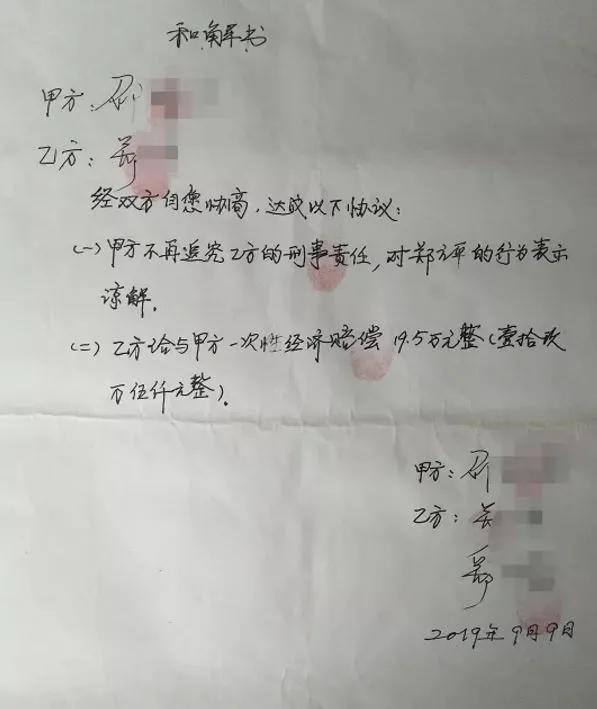 和解书
甲方:
乙方:郑
经双方自愿协商,达成以下协议:
(一)甲方不再追究乙方的刑事责任,对郑立平的行为表示
谅解。
(二)乙方给与甲方一次性经济赔偿19.5万元整(壹拾玖
万伍仟元整)。
甲方:
乙方:
郑
2019年9月9日